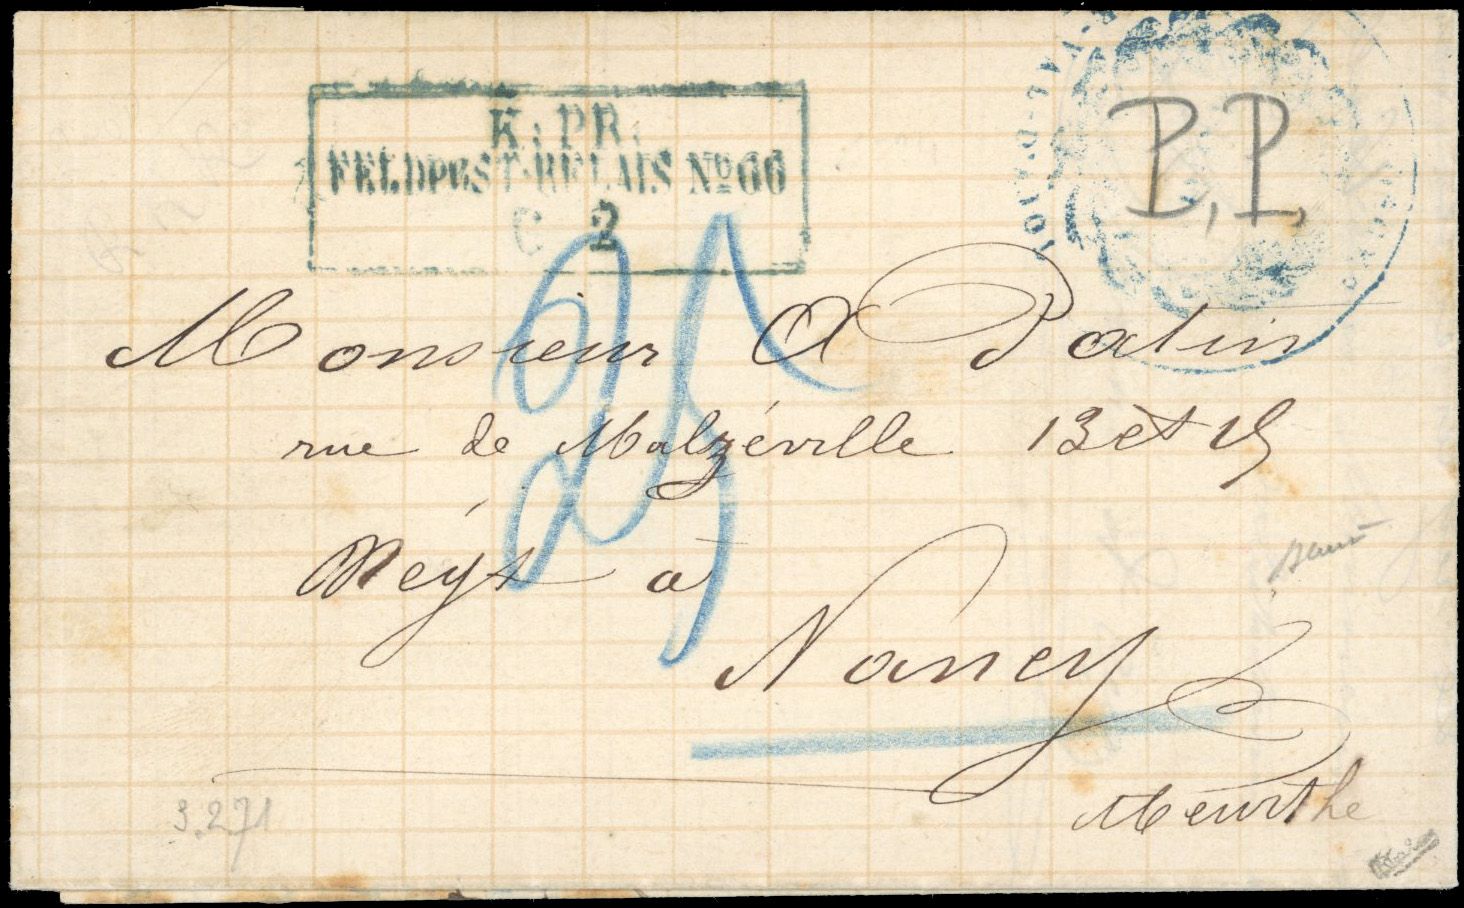 K: PR:
FELDPOST-RELAIS No 66
C 2
P.P.
25
Monsieur A Patin
rue de Malzéville 13 et 15
à
Nancy
Meurthe
3.271